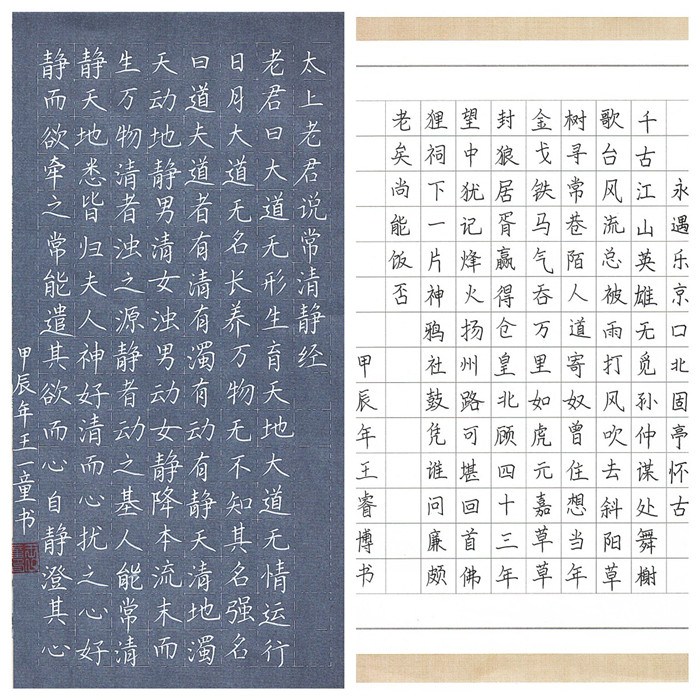 太上老君说常清静经
老君曰大道无形生育天地大道无情运行
日月大道无名长养万物无不知其名强名
曰道夫道者有清有濁有动有静天清地濁
天动地静男清女浊男动女静降本流末而
生万物清者浊之源静者动之基人能常清
静天地悉皆归夫人神好清而心扰之心好
静而欲牵之常能遣其欲而心自静澄其心
甲辰年王一童书
永遇乐京口北固亭怀古
千古江山英雄无觅孙仲谋处舞榭
歌台风流总被雨打风吹去斜阳草
树寻常巷陌人道寄奴曾住想当年
金戈铁马气吞万里如虎元嘉草草
封狼居胥赢得仓皇北顾四十三年
望中犹记烽火扬州路可堪回首佛
狸祠下一片神鸦社鼓凭谁问廉颇
老矣尚能饭否
甲辰年王睿博书